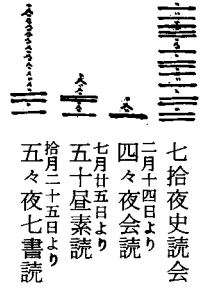 七拾夜史読会
二月十四日より
四々夜会読
七月廿五日より
五十昼素読
拾月二十五日より
五々夜七書読